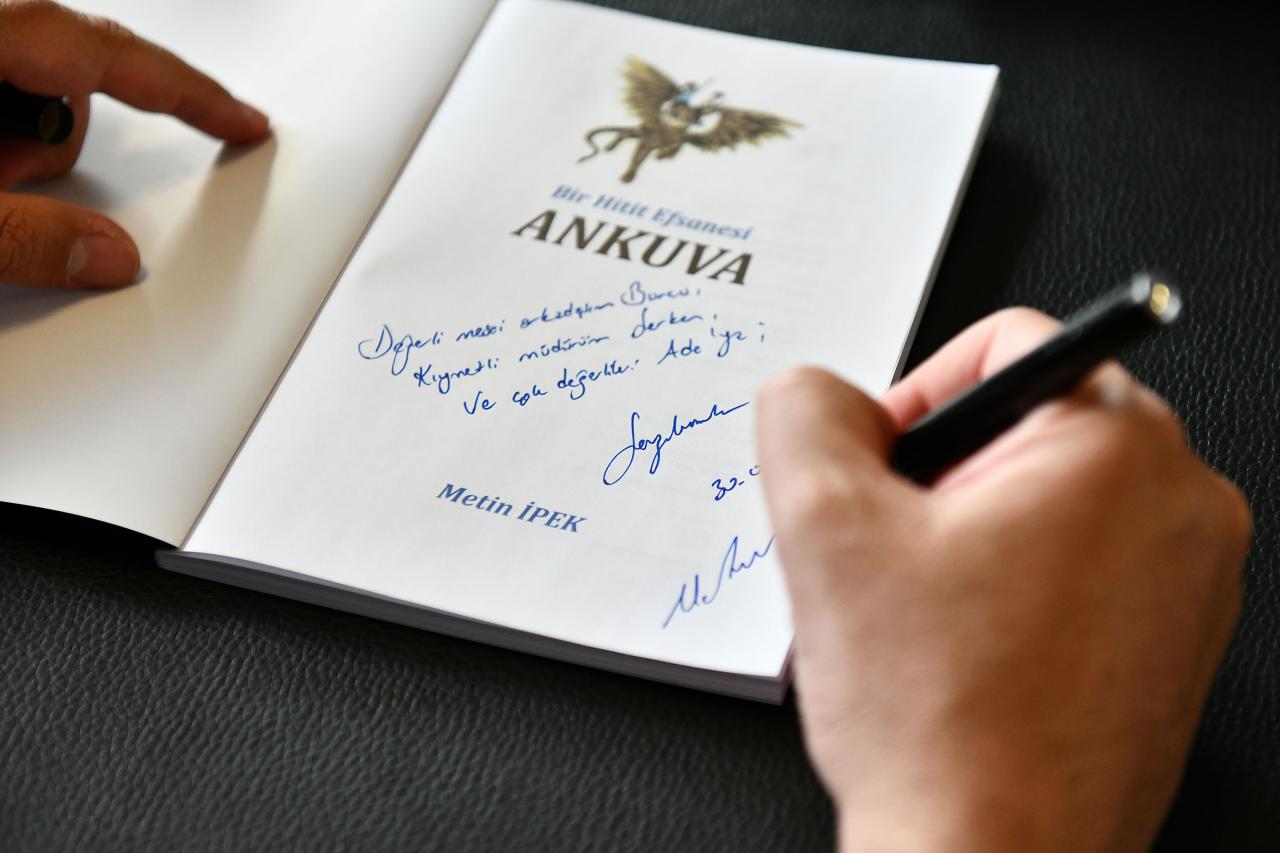 Bir Hitit Efsanesi
ANKUVA
Değerli mesai arkadaşım Burcu,
Kıymetli müdürüm Serkan,
Ve çok değerli
Saygılarımla
30.0
Metin İPEK